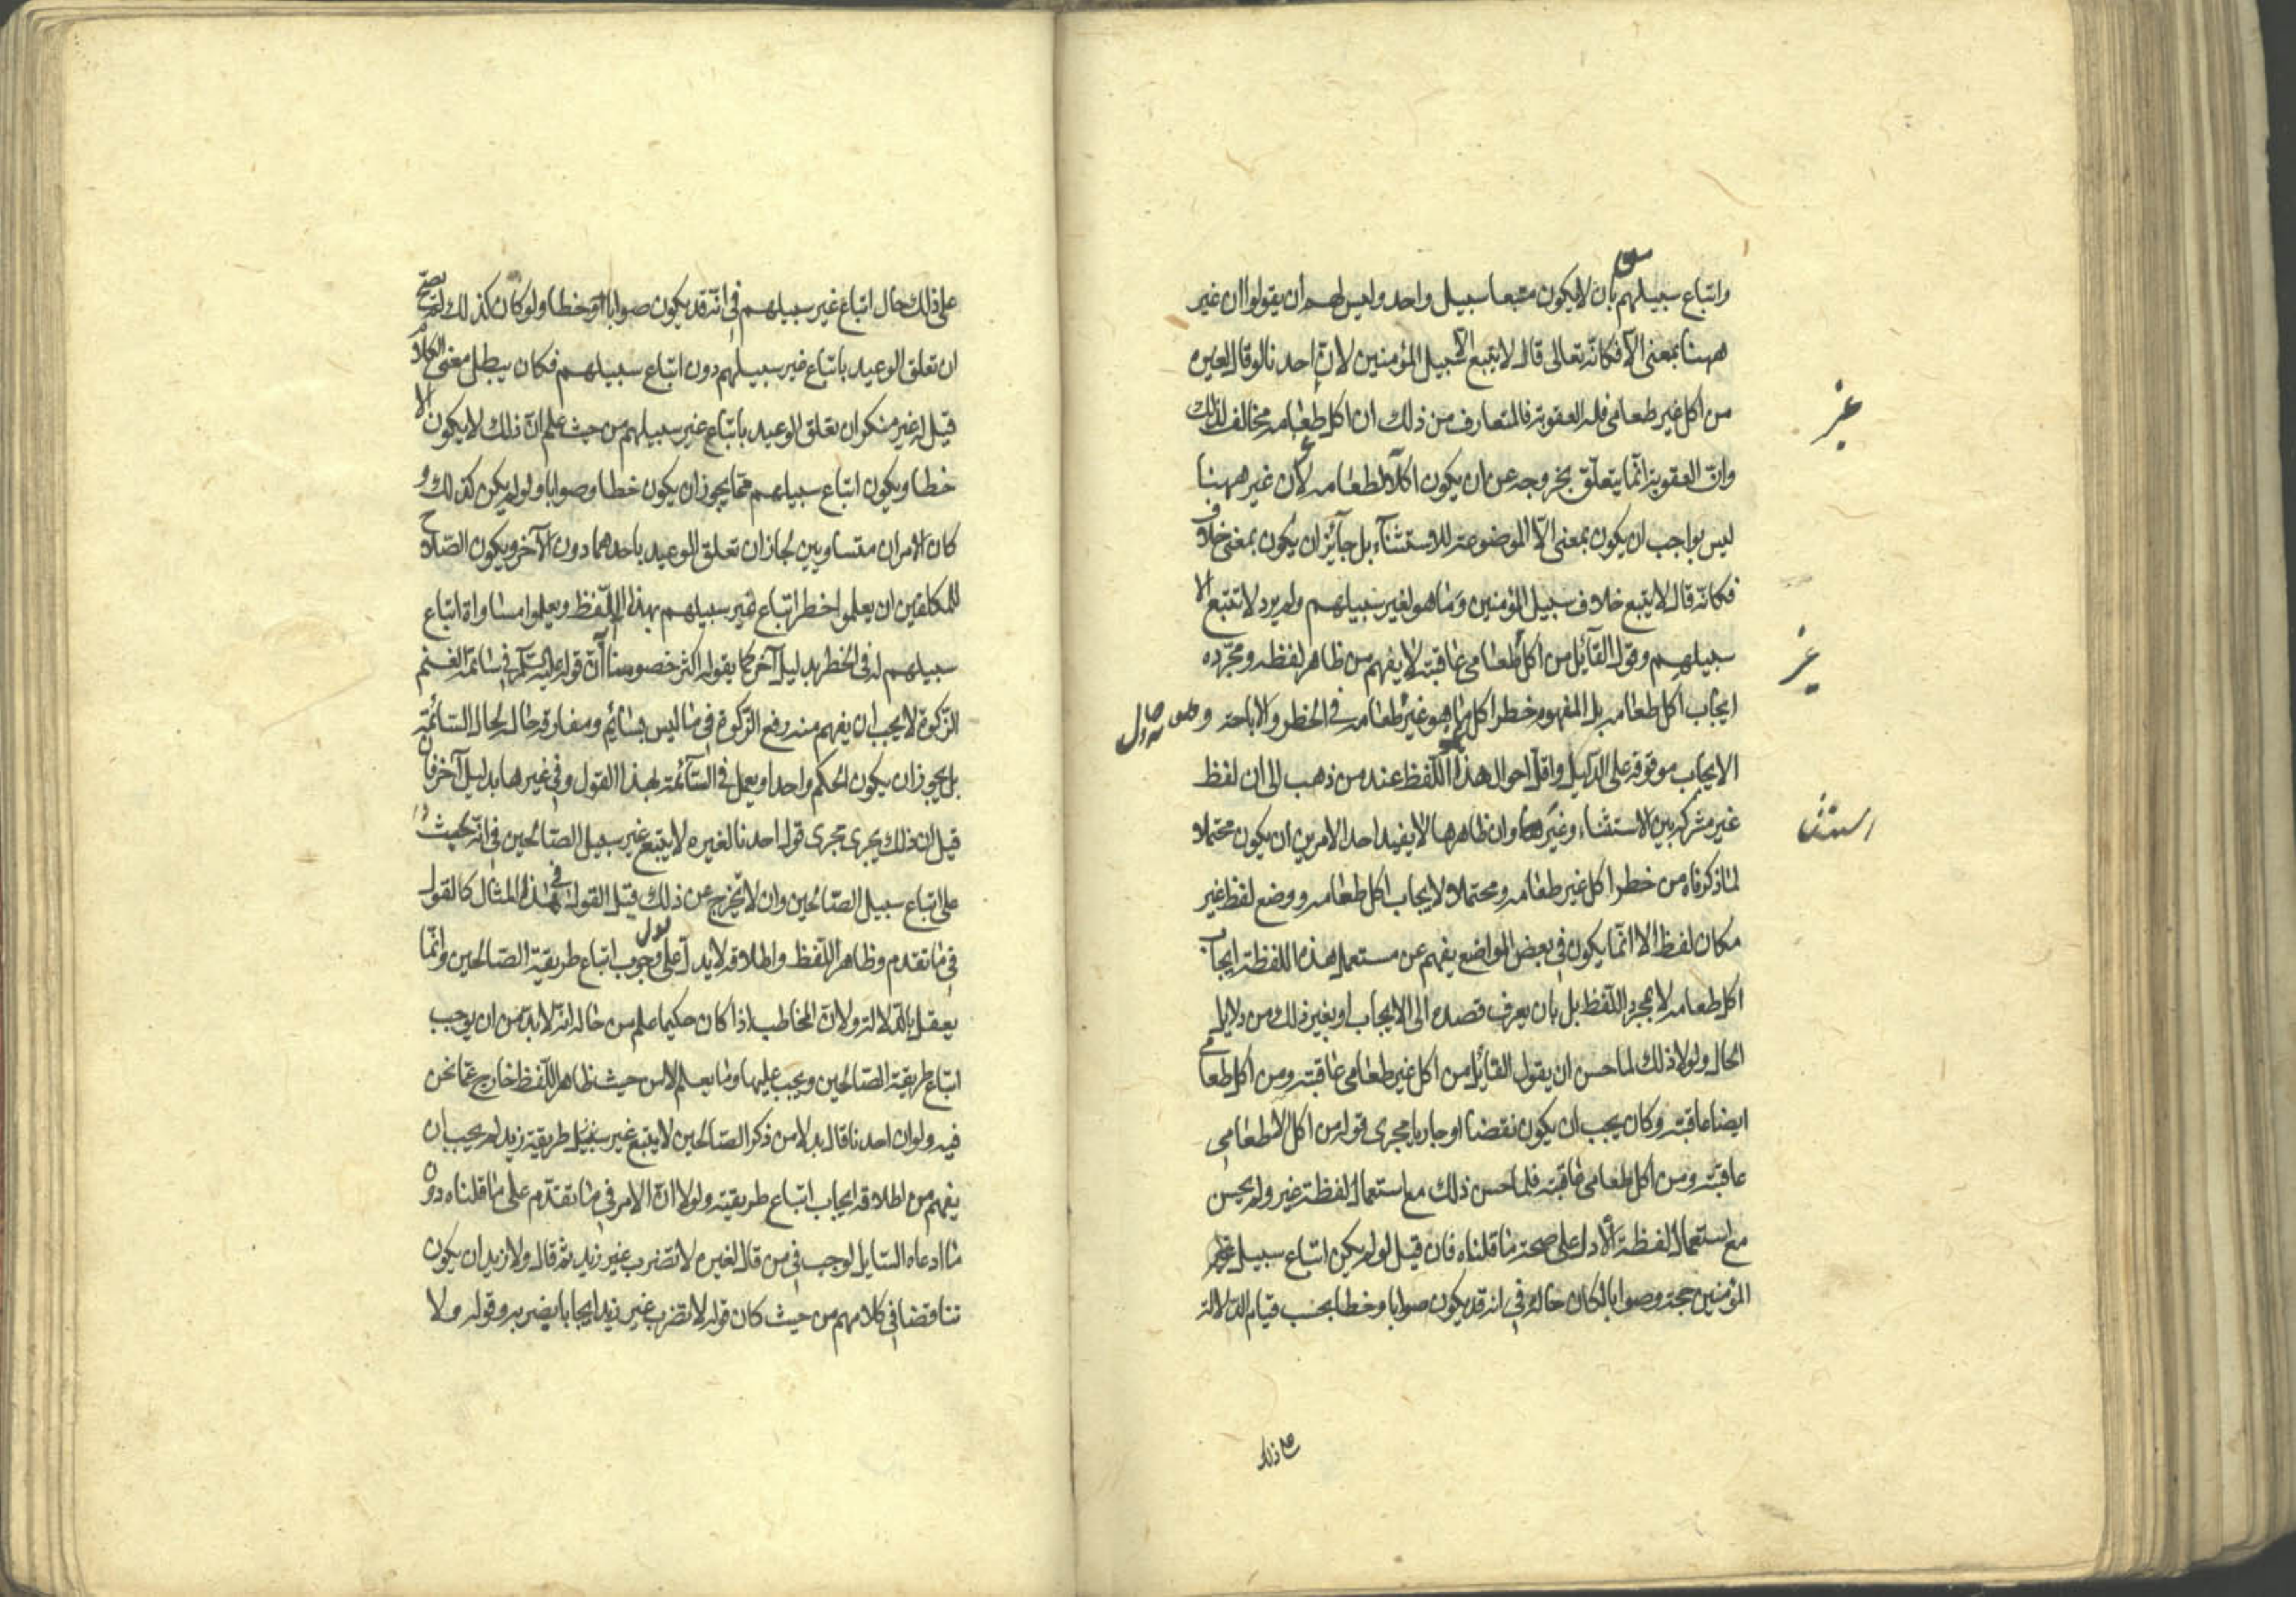 واتباع سبيلهم بان لا يكون متبعا سبيل واحد وليس لهم ان يقولوا ان غير
ههنا بمعنى الا فكانه تعالى قال لا يتبع الا سبيل المؤمنين لان احدنا لو قال لغيره
من اكل غير طعامي فله العقوبة فالمتعارف من ذلك ان اكل طعامه مخالف لذلك
وان العقوبة انما يتعلق بخروجه عن ان يكون اكلا لطعامه لان غير ههنا
ليس بواجب ان يكون بمعنى الا الموضوعة للاستثناء بل جائز ان يكون بمعنى خلاف
فكانه قال لا يتبع خلاف سبيل المؤمنين وما هو لغير سبيلهم ولم يرد لا تتبع الا
سبيلهم وقول القائل من اكل طعامي عاقبته لا يفهم من ظاهر لفظه ومجرده
ايجاب اكل طعامه بل المفهوم خطر اكل ما هو غير طعامه في الحظر والاباحة و
الايجاب موقوفة على الدليل واقل احوال هذا اللفظ عند من ذهب الى ان لفظ
غير مشتركة بين الاستثناء وغيره وان ظاهرها لا يفيد احد الامرين ان يكون محتملا
لما ذكرناه من خطر اكل غير طعامه ومحتملا لايجاب اكل طعامه ووضع لفظ غير
مكان لفظ الا انما يكون في بعض المواضع يفهم عن مستعمل هذه اللفظة ايجاب
اكل طعامه لا بمجرد اللفظ بل بان يعرف قصده الى الايجاب او بغير ذلك من دلايل
الحال ولولا ذلك لما حسن ان يقول القائل من اكل غير طعامي عاقبته ومن اكل طعامي
ايضا عاقبته وكان يجب ان يكون نقضا او جاريا مجرى قوله من اكل الا طعامي
عاقبته ومن اكل طعامي عاقبته فلما حسن ذلك مع استعمال لفظة غير ولم يحسن
مع استعمال لفظة الا دل على صحة ما قلناه فان قيل لو لم يكن اتباع سبيل
المؤمنين حجة وصوابا لكان حاله في انه قد يكون صوابا وخطا بحسب قيام الدلالة
على ذلك
غير
غير
استثنا
على ذلك حال اتباع غير سبيلهم في انه قد يكون صوابا وخطا ولو كان كذلك لم يصح
ان تعلق الوعيد باتباع غير سبيلهم دون اتباع سبيلهم فكان يبطل معنى الكلام
قيل له غير منكر ان تعلق الوعيد باتباع غير سبيلهم من حيث علم ان ذلك لا يكون الا
خطا ويكون اتباع سبيلهم مما يجوز ان يكون خطا وصوابا ولو لم يكن كذلك و
كان الامران متساويين لجاز ان تعلق الوعيد باحدهما دون الآخر ويكون الصلاح
للمكلفين ان يعلموا خطر اتباع غير سبيلهم بهذا اللفظ ويعلموا مساواة اتباع
سبيلهم له في الخطر بدليل آخر كما يقوله اكثر خصومنا ان قوله عليه السلم في سائمة الغنم
الزكوة لا يجب ان يفهم منه رفع الزكوة في ما ليس بسائم ومفارقة حاله لحال السائمة
بل يجوز ان يكون الحكم واحدا ويعمل في السائمة بهذا القول وفي غيرها بدليل آخر فان
قيل ان ذلك يجرى مجرى قول احدنا لغيره لا يتبع غير سبيل الصالحين في انه
على اتباع سبيل الصالحين وان لا يخرج عن ذلك قيل القول في هذا المثال كالقول
في ما تقدم وظاهر اللفظ واطلاقه لا يدل على وجوب اتباع طريقة الصالحين وانما
يعقل بالدلالة ولان المخاطب اذا كان حكيما علم من حاله انه لا بد من ان يوجب
اتباع طريقة الصالحين ويجب عليها وما يعلم لا من حيث ظاهر اللفظ خارج عما نحن
فيه ولو ان احدنا قال بدلا من ذكر الصالحين لا يتبع غير سبيل طريقة زيد لم يجب ان
يفهم من اطلاقه ايجاب اتباع طريقته ولولا ان الامر في ما تقدم على ما قلناه دون
ما ادعاه السايل لوجب في من قال لغيره لا تضرب غير زيد ثم قال ولا زيد ان يكون
تناقضا في كلامهم من حيث كان قوله لا تضرب غير زيد ايجابا لضربه وقوله ولا